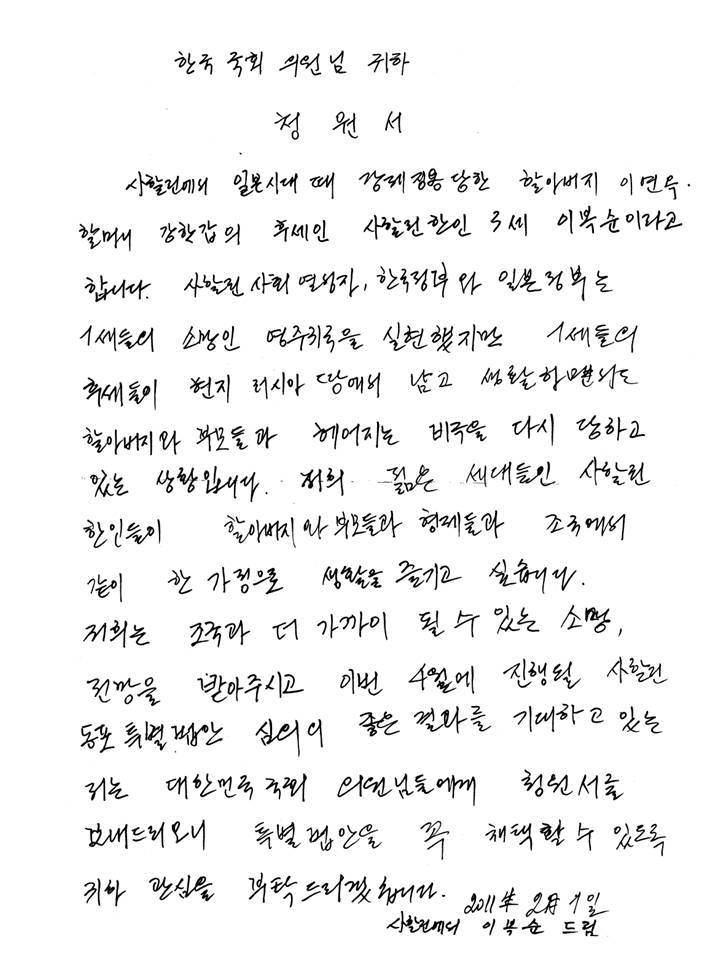 한국 국회 의원님 귀하
청 원 서
사할린에서 일본시대 때 강제징용 당한 할아버지 이연욱.
할머니 강핫갑의 후세인 사할린한인 3세 이복순이라고
합니다. 사할린 사회 열성자, 한국정부와 일본정부는
1세들의 소망인 영주귀국을 실현했지만 1세들의
후세들이 현지 러시아 땅에서 남고 생활하면서도
할아버지와 부모들과 헤어지는 비극을 다시 당하고
있는 상황입니다. 저희 젊은 세대들인 사할린
한인들이 할아버지와 부모들과 형제들과 조국에서
같이 한 가정으로 생활을 즐기고 싶습니다.
저희는 조국과 더 가까이 될 수 있는 소망,
전망을 받아주시고 이번 4월에 진행될 사할린
동포 특별법안 심의의 좋은 결과를 기대하고 있는
저는 대한민국 국회 의원님들에게 청원서를
보내드리오니 특별법안을 꼭 채택할 수 있도록
귀하 관심을 부탁드리겠습니다.
2011年 2月 1일
사할린에서 이복순 드림